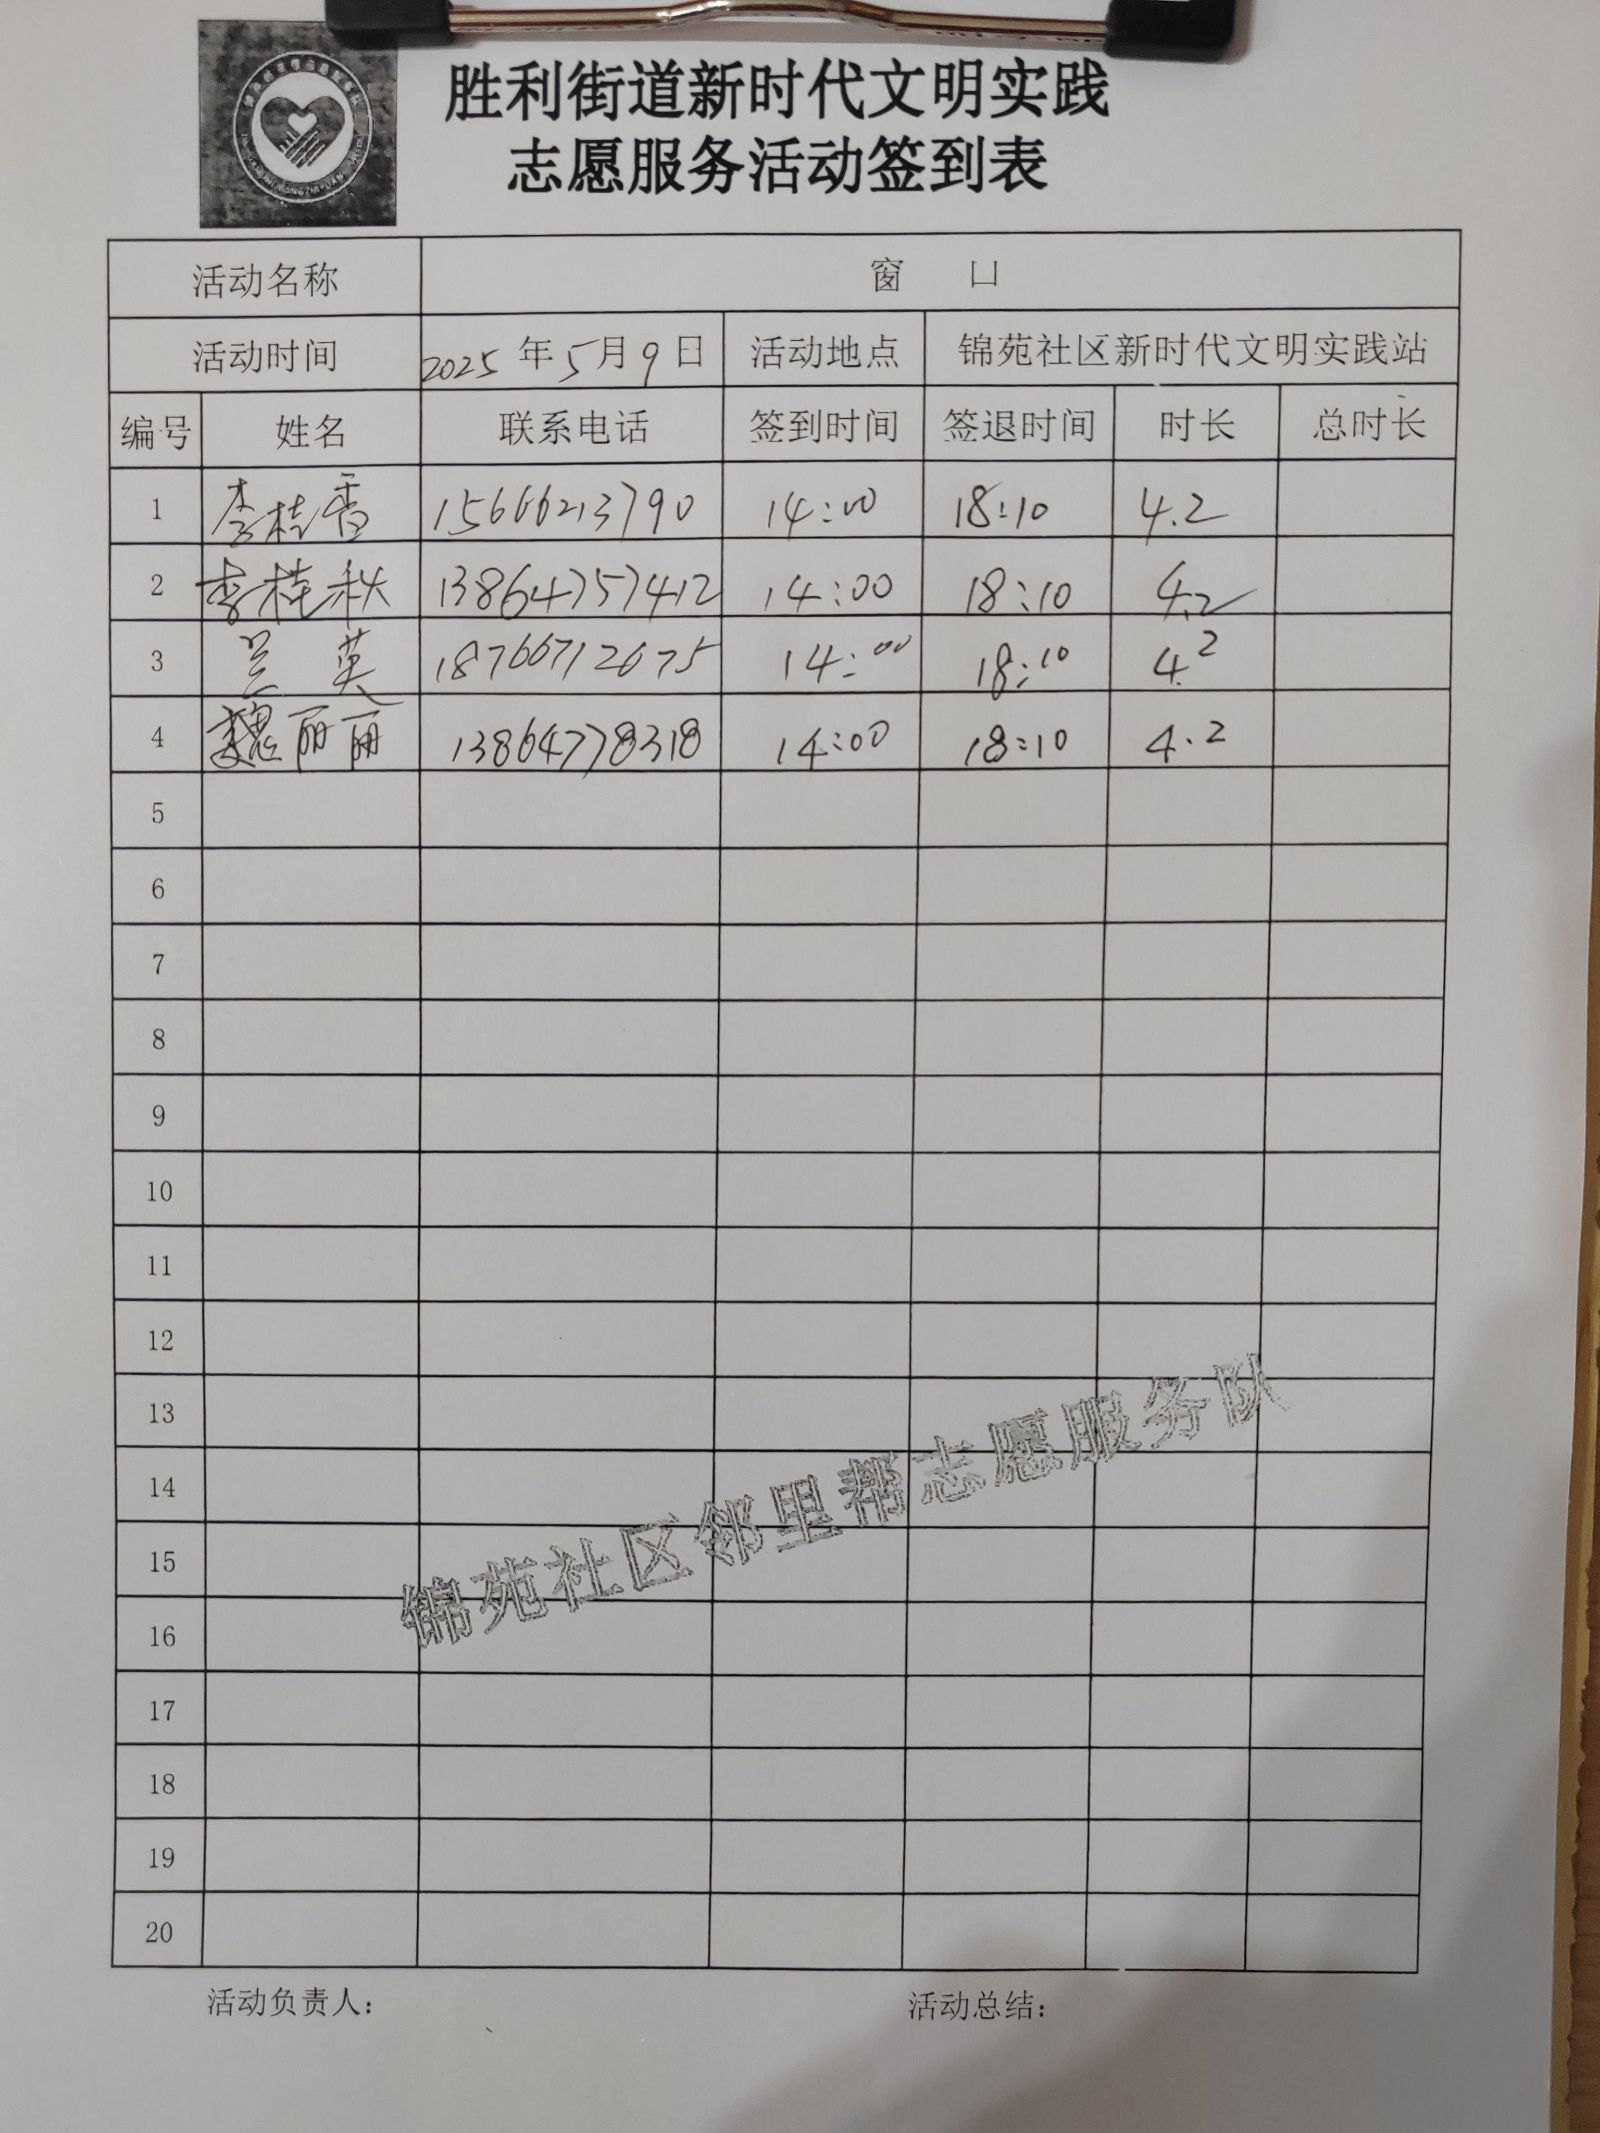 胜利街道新时代文明实践
志愿服务活动签到表
活动名称 窗 口
活动时间 2025 年 5 月 9 日 活动地点 锦苑社区新时代文明实践站
编号 姓名 联系电话 签到时间 签退时间 时长 总时长
1 李桂香 15666213790 14:00 18:10 4.2
2 李桂秋 13864757412 14:00 18:10 4.2
3 兰 英 18766712675 14:00 18:10 4.2
4 魏丽丽 13864778318 14:00 18:10 4.2
5
6
7
8
9
10
11
12
13
14
15
16
17
18
19
20
锦苑社区邻里帮志愿服务队
活动负责人：
活动总结：